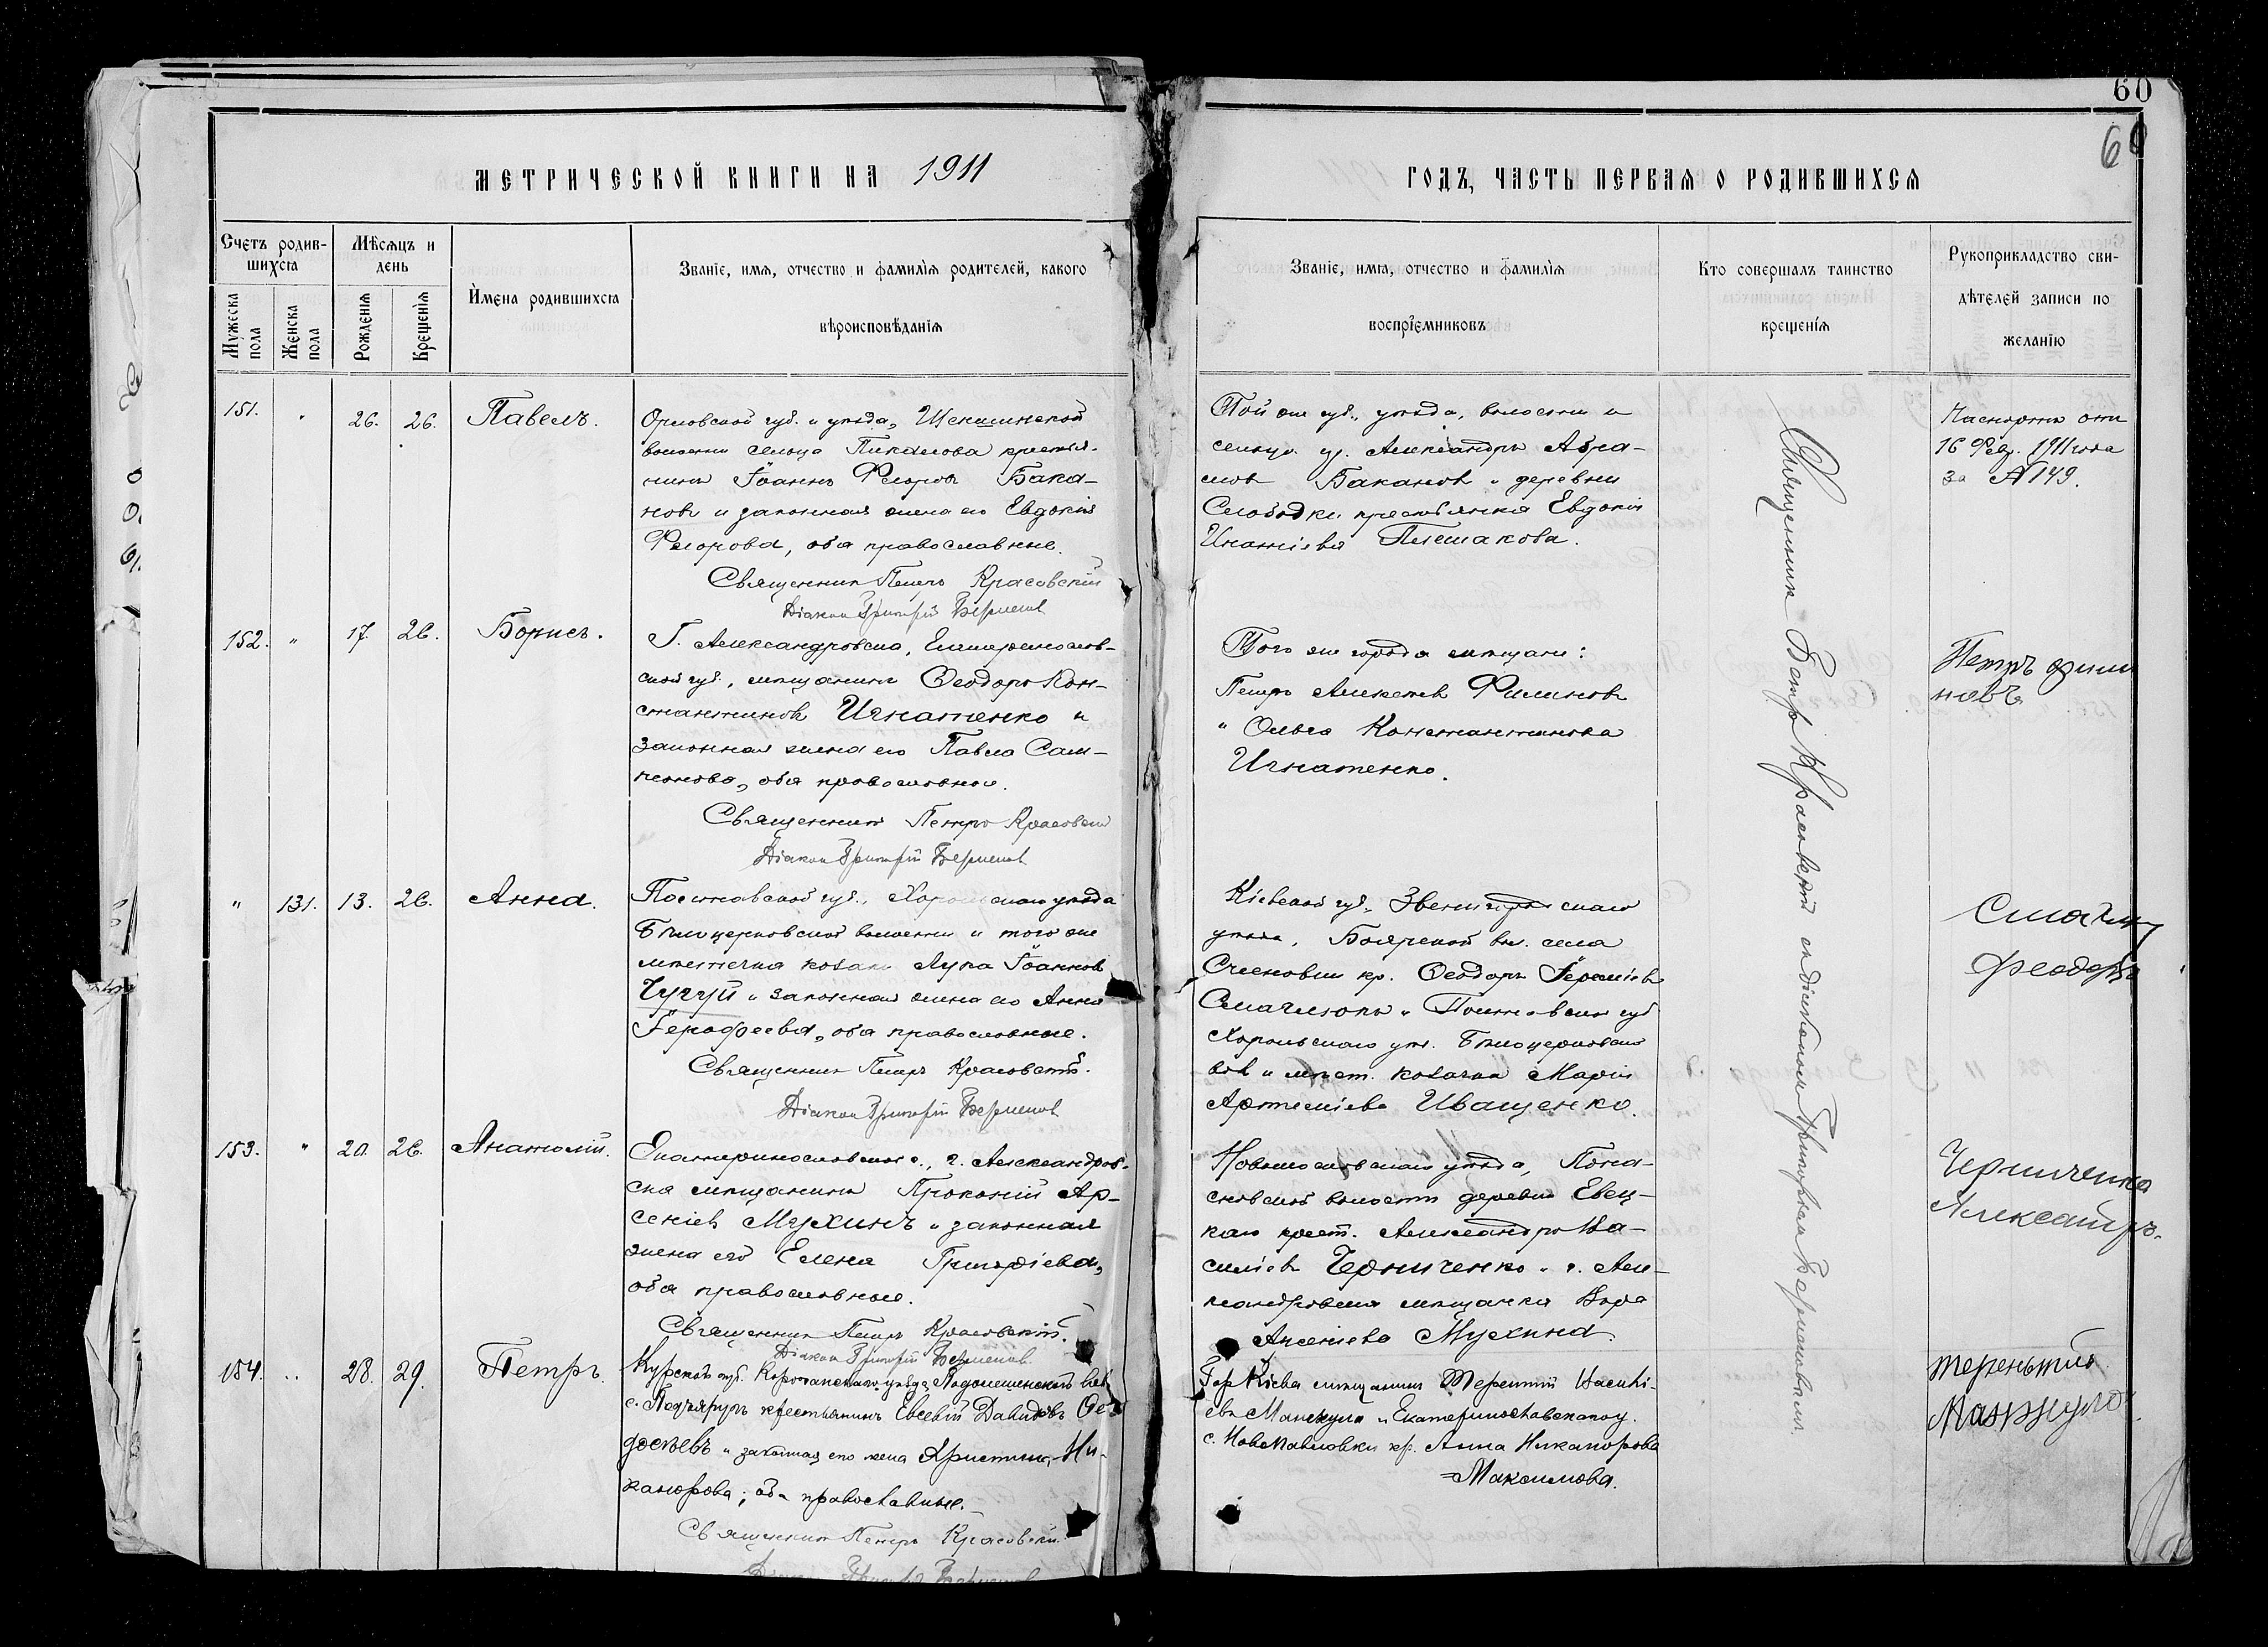 60
60
МЕТРИЧЕСКОЙ КНИГИ НА 1911
ГОДЪ, ЧАСТЬ ПЕРВАЯ О РОДИВШИХСЯ
Счетъ родив-
шихся
Мужеска
пола
Женска
пола
Мѣсяцъ и
день
Рожденія
Крещенія
Имена родившихся
Званіе, имя, отчество и фамилія родителей, какого
вѣроисповѣданія
Званіе, имя, отчество и фамилія
воспріемниковъ
Кто совершалъ таинство
крещенія
Рукоприкладство сви-
дѣтелей записи по
желанію
151. " 26. 26. Павелъ.
Орловской губ. и уѣзда,
волости сельца Пикалова крестья-
нинъ Іоаннъ Ѳеоровъ Бака-
новъ и законная жена его Евдокія
Ѳеорова, оба православные.
Священникъ Петръ Красовскій
Діаконъ Григорій
Той же губ., уѣзда, волости и
сельца кр. Александръ Абра-
мовъ Бакановъ и деревни
Слободки крестьянка Евдокія
Игнатіева Плешакова.
Паспортъ отъ
16 Фев. 1911 года
за №149.
152. " 17. 26. Борисъ.
Г. Александровска, Екатеринослав-
ской губ., мѣщанинъ Ѳеодоръ Кон-
стантиновъ Игнатенко и
законная жена его Павла Сам-
псонова, оба православные.
Священникъ Петръ Красовскій
Діаконъ Григорій
Того же города мѣщане:
Петръ Алексѣевъ Филиновъ
и Ольга Константинова
Игнатенко.
Петръ Фили
новъ
" 131. 13. 26. Анна.
Полтавской губ., Хорольскаго уѣзда
Бѣлоцерковской волости и того же
мѣстечка козакъ Лука Іоанновъ
Чугуй и законная жена его Анна
Іероѳеева, оба православные.
Священникъ Петръ Красовскій.
Діаконъ Григорій
Кіевской губ., Звенигородскаго
уѣзда, Боярской вол. села
кр. Ѳеодоръ Іереміевъ
и Полтавской губ
Хорольскаго уѣз. Бѣлоцерковской
вол и мѣст. козачка Марія
Артеміева Иващенко.
Феодоръ
153. " 20. 26. Анатолій.
Екатеринославской г., г. Александров-
ска мѣщанинъ Прокопій Ар-
сеніевъ Мухинъ и законная
жена его Елена Григоріева,
оба православные.
Священникъ Петръ Красовскій.
Діаконъ Григорій
Новомосковскаго уѣзда,
волости деревни Евец-
каго крест. Александръ Ва-
силіевъ Черниченко и г. Але-
ксандровска мѣщанка Вѣра
Арсеніева Мухина.
Черниченко
Александръ.
154. " 28. 29. Петръ.
Курской губ. Корочанскаго уѣзда,
с. крестьянинъ Евсевій Давидовъ Ѳео
досѣевъ и законная его жена Христина Ни-
канорова; оба православные.
Священникъ Петръ Красовскій.
Діаконъ Григорій
Гор Кіева мѣщанинъ Терентій Васильі-
евъ и Екатеринославскаго у.
с. Новопавловки кр. Анна Никанорова
Максимова.
терентій
Священникъ Петръ Красовскій съ діакономъ Григоріемъ